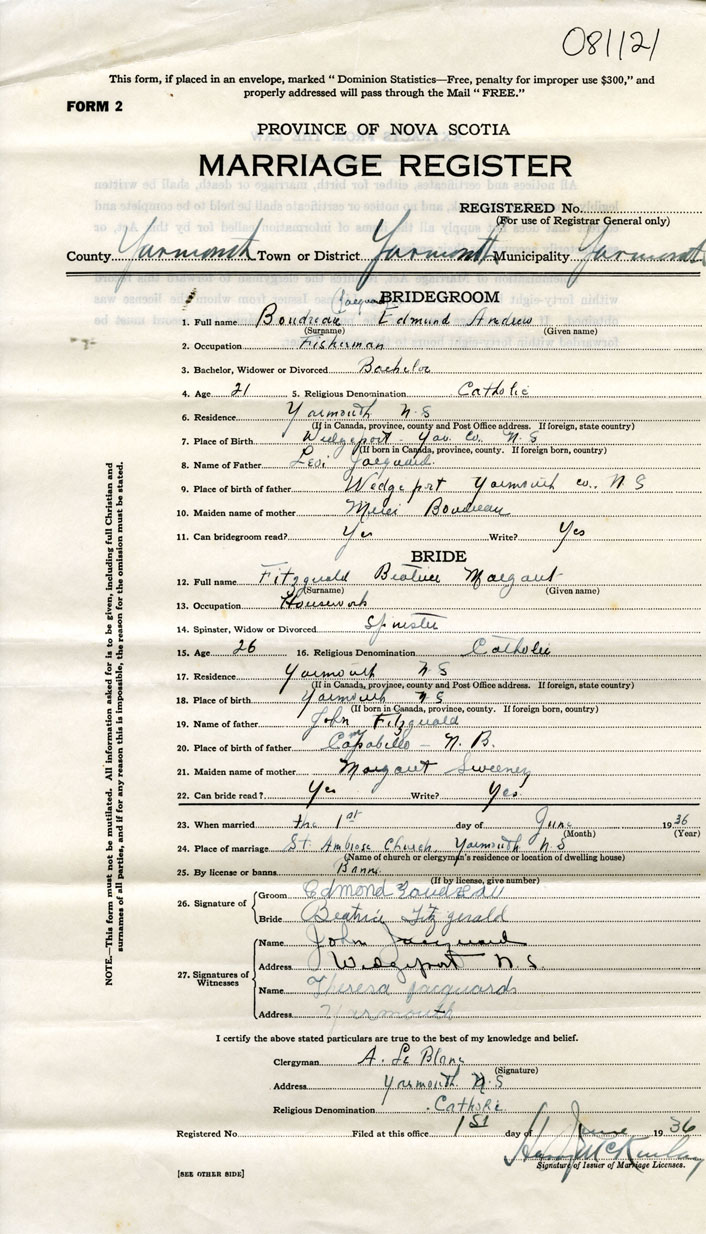 081121
This form, if placed in an envelope, marked “ Dominion Statistics—Free, penalty for improper use $300,” and
properly addressed will pass through the Mail “ FREE.”
FORM 2
PROVINCE OF NOVA SCOTIA
MARRIAGE REGISTER
REGISTERED No.
(For use of Registrar General only)
County Yarmouth Town or District Yarmouth Municipality Yarmouth
Jacquard
BRIDEGROOM
1. Full name Boudreau Edmund Andrew
(Surname) (Given name)
2. Occupation Fisherman
3. Bachelor, Widower or Divorced Bachelor
4. Age 21 5. Religious Denomination Catholic
6. Residence Yarmouth N S
(If in Canada, province, county and Post Office address. If foreign, state country)
7. Place of Birth Wedgeport - Yar. Co. N. S
(If born in Canada, province, county. If foreign born, country)
8. Name of Father Levi Jacquard.
9. Place of birth of father Wedgeport Yarmouth Co., N S
10. Maiden name of mother Boudreau
11. Can bridegroom read? Yes Write? Yes
BRIDE
12. Full name Fitzgerald Beatrice Margaret
(Surname) (Given name)
13. Occupation Housework
14. Spinster, Widow or Divorced Spinster
15. Age 26 16. Religious Denomination Catholic
17. Residence Yarmouth N S
(If in Canada, province, county and Post Office address. If foreign, state country)
18. Place of birth Yarmouth N S
(If born in Canada, province, county. If foreign born, country)
19. Name of father John Fitzgerald
20. Place of birth of father Campobello - N. B.
21. Maiden name of mother Margaret Sweeney
22. Can bride read? Yes Write? Yes
23. When married the 1st day of June 1936
(Month) (Year)
24. Place of marriage St. Ambrose Church, Yarmouth N S
(Name of church or clergyman's residence or location of dwelling house)
25. By license or banns Banns
(If by license, give number)
26. Signature of Groom Edmond
Bride Beatrice Fitzgerald
27. Signatures of Witnesses
Name John Jacquard
Address Wedgeport N. S.
Name Theresa Jacquard
Address Yarmouth
I certify the above stated particulars are true to the best of my knowledge and belief.
Clergyman A. Le Blanc
(Signature)
Address Yarmouth N. S
Religious Denomination Catholic
Registered No. Filed at this office 1st day of June 1936
Signature of Issuer of Marriage Licenses.
[SEE OTHER SIDE]
NOTE.—This form must not be mutilated. All information asked for is to be given, including full Christian and
surnames of all parties, and if for any reason this is impossible, the reason for the omission must be stated.